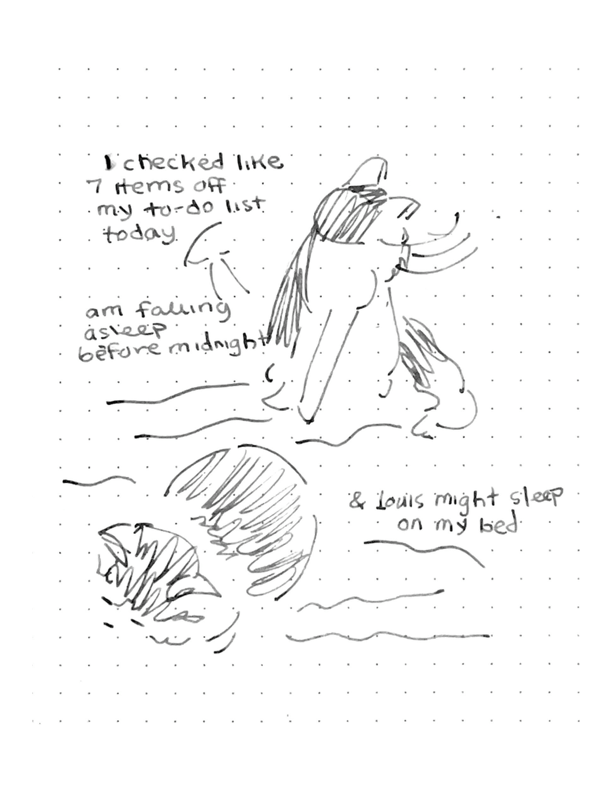 I checked like
7 items off
my to-do list
today
am falling
asleep
before midnight
& Louis might sleep
on my bed